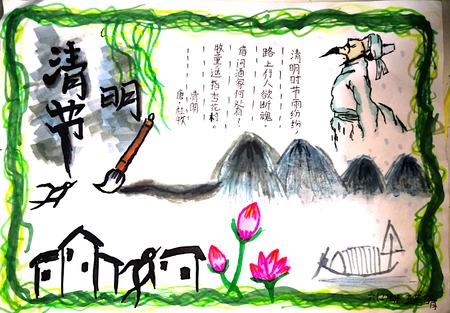 清明节
清明时节雨纷纷，
路上行人欲断魂。
借问酒家何处有？
牧童遥指杏花村。
清明
唐·杜牧